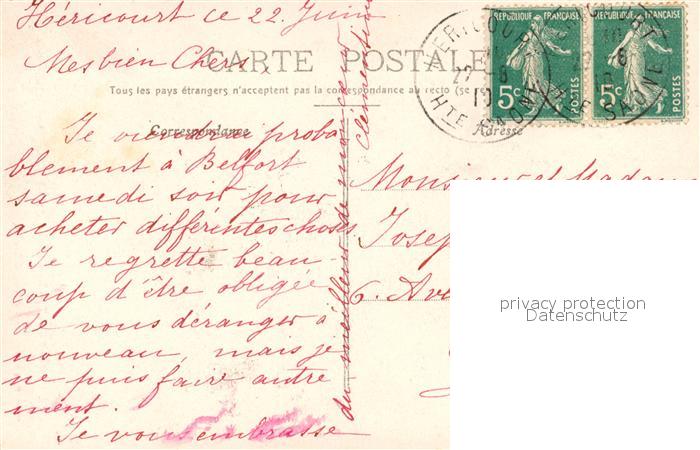 Héricourt ce 22 Juin
Mes bien Chers,
CARTE POSTALE
Tous les pays étrangers n'acceptent pas la correspondance au recto (se
Correspondance
Adresse
Je viendrai proba
blement à Belfort
samedi soir pour
acheter différentes choses
Je regrette beau-
coup d'être obligée
de vous déranger à
nouveau, mais je
ne puis faire autre
ment.
Je vous embrasse
du meilleur de mon cœur
Clémentine
Monsieur et Madam
Josep
6. Av
REPUBLIQUE FRANÇAISE
5c POSTES
REPUBLIQUE FRANÇAISE
5c POSTES
HERICOURT
HTE SAONE
privacy protection
Datenschutz